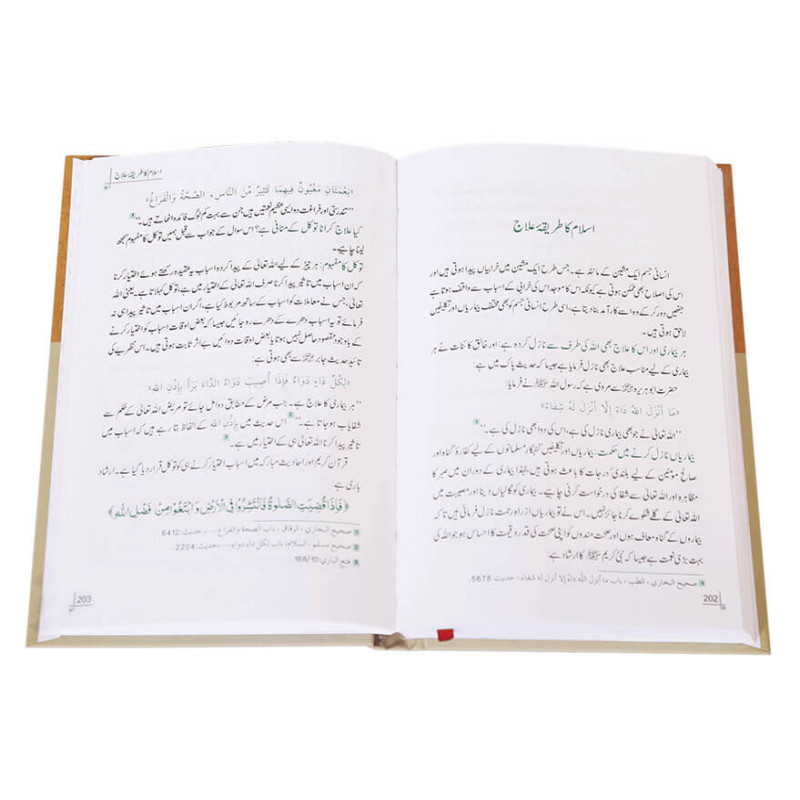 اسلام کا طریقۂ علاج
انسانی جسم ایک مشین کے مانند ہے۔ جس طرح ایک مشین میں خرابیاں پیدا ہوتی ہیں اور
اس کی اصلاح بھی ممکن ہوتی ہے کیونکہ اس کا موجد اس کی خرابی کے اسباب سے واقف ہوتا ہے
جنھیں دور کر کے وہ اسے کارآمد بنا دیتا ہے، اسی طرح انسانی جسم کو بھی مختلف بیماریاں اور تکلیفیں
لاحق ہوتی ہیں۔
ہر بیماری اور اس کا علاج بھی اللہ کی طرف سے نازل کردہ ہے: اور خالق کائنات نے ہر
بیماری کے لیے مناسب علاج بھی نازل فرمایا ہے جیسا کہ حدیث پاک میں ہے:
حضرت ابوہریرہ رضی اللہ عنہ سے مروی ہے کہ رسول اللہ ﷺ نے فرمایا:
«مَا أَنْزَلَ اللّٰهُ دَاءً إِلَّا أَنْزَلَ لَهُ شِفَاءً»
”اللہ تعالیٰ نے جو بھی بیماری نازل کی ہے، اس کی دوا بھی نازل کی ہے۔“
بیماریاں نازل کرنے میں حکمتیں: بیماریاں اور تکلیفیں گنہگار مسلمانوں کے لیے کفارۂ گناہ اور
صالح مومنین کے لیے بلندیٔ درجات کا باعث ہوتی ہیں، لہٰذا بیماری کے دوران میں صبر کا
مظاہرہ اور اللہ تعالیٰ سے شفا کی درخواست کرنی چاہیے۔ بیماری کو گالیاں دینا اور مصیبت میں
اللہ تعالیٰ کے گلے شکوے کرنا جائز نہیں۔ اس نے تو بیماریاں از راہ رحمت نازل فرمائی ہیں تاکہ
بیماروں کے گناہ معاف ہوں اور صحت مندوں کو اپنی صحت کی قدر و قیمت کا احساس ہو جو اللہ کی
بہت بڑی نعمت ہے جیسا کہ نبی کریم ﷺ کا ارشاد ہے:
صحيح البخاري، الطب، باب ما أنزل الله داء إلا أنزل له شفاء، حديث: 5678.
202
اسلام کا طریقۂ علاج
«نِعْمَتَانِ مَغْبُونٌ فِيهِمَا كَثِيرٌ مِّنَ النَّاسِ، الصِّحَّةُ وَالْفَرَاغُ»
”تندرستی اور فراغت دو ایسی عظیم نعمتیں ہیں جن سے بہت کم لوگ فائدہ اٹھاتے ہیں۔“
کیا علاج کرانا توکل کے منافی ہے؟ اس سوال کے جواب سے قبل ہمیں توکل کا مفہوم سمجھ
لینا چاہیے۔
توکل کا مفہوم: ہر چیز کے لیے اللہ تعالیٰ کے پیدا کردہ اسباب پر عقیدہ رکھتے ہوئے اختیار کرنا
کہ ان اسباب میں تاثیر پیدا کرنا صرف اللہ تعالیٰ کے اختیار میں ہے، توکل کہلاتا ہے۔ یعنی اللہ
تعالیٰ، جس نے معاملات کو اسباب کے ساتھ مربوط کیا ہے، اگر ان اسباب میں تاثیر پیدا ہی نہ
فرمائے تو یہ اسباب دھرے کے دھرے رہ جائیں جیسا کہ بعض اوقات اسباب کو اختیار کرنے
کے باوجود مقصود حاصل نہیں ہوتا یا بعض اوقات دوائیں بے اثر ثابت ہوتی ہیں۔ اس نظریے کی
تائید حدیث جابر رضی اللہ عنہ سے بھی ہوتی ہے:
«لِكُلِّ دَاءٍ دَوَاءٌ فَإِذَا أُصِيبَ دَوَاءُ الدَّاءِ بَرَأَ بِإِذْنِ اللّٰهِ»
”ہر بیماری کا علاج ہے۔ جب مرض کے مطابق دوا مل جائے تو مریض اللہ تعالیٰ کے حکم سے
شفایاب ہو جاتا ہے۔“ اس حدیث میں بِإِذْنِ اللّٰهِ کے الفاظ بتا رہے ہیں کہ اسباب میں
تاثیر پیدا کرنا اللہ تعالیٰ ہی کے اختیار میں ہے۔
قرآن کریم اور احادیث مبارکہ میں اسباب اختیار کرنے ہی کو توکل قرار دیا گیا ہے۔ ارشاد
باری ہے:
﴿فَإِذَا قُضِيَتِ الصَّلٰوةُ فَانْتَشِرُوا فِي الْأَرْضِ وَابْتَغُوا مِنْ فَضْلِ اللّٰهِ﴾
صحيح البخاري، الرقاق، باب الصحة والفراغ ....، حديث: 6412.
صحيح مسلم، السلام، باب لكل داء دواء ....، حديث: 2204.
فتح الباري: 168/10.
203